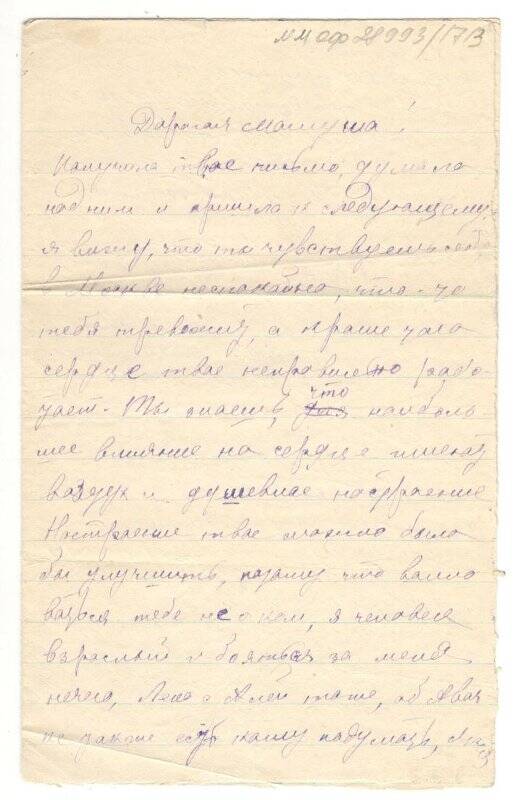 ММ ОФ 28993/17 В
Дорогая Мамуша!
Получила твое письмо, думала
над ним и пришла к следующему,
я вижу, что ты чувствуешь себя
в Москве неспакойно, что-то
тебя тревожит, а кроме того
сердце твое неправильно рабо-
тает. Ты знаешь, что наиболь
шее влияние на сердце имеют
воздух и душевное настроение
Настроение твое можно было
бы улучшить, потому что волно
ваться тебе не о ком, я человек
взрослый и бояться за меня
нечего, Леле с Алей тоже, об
не также есть кому подумать,